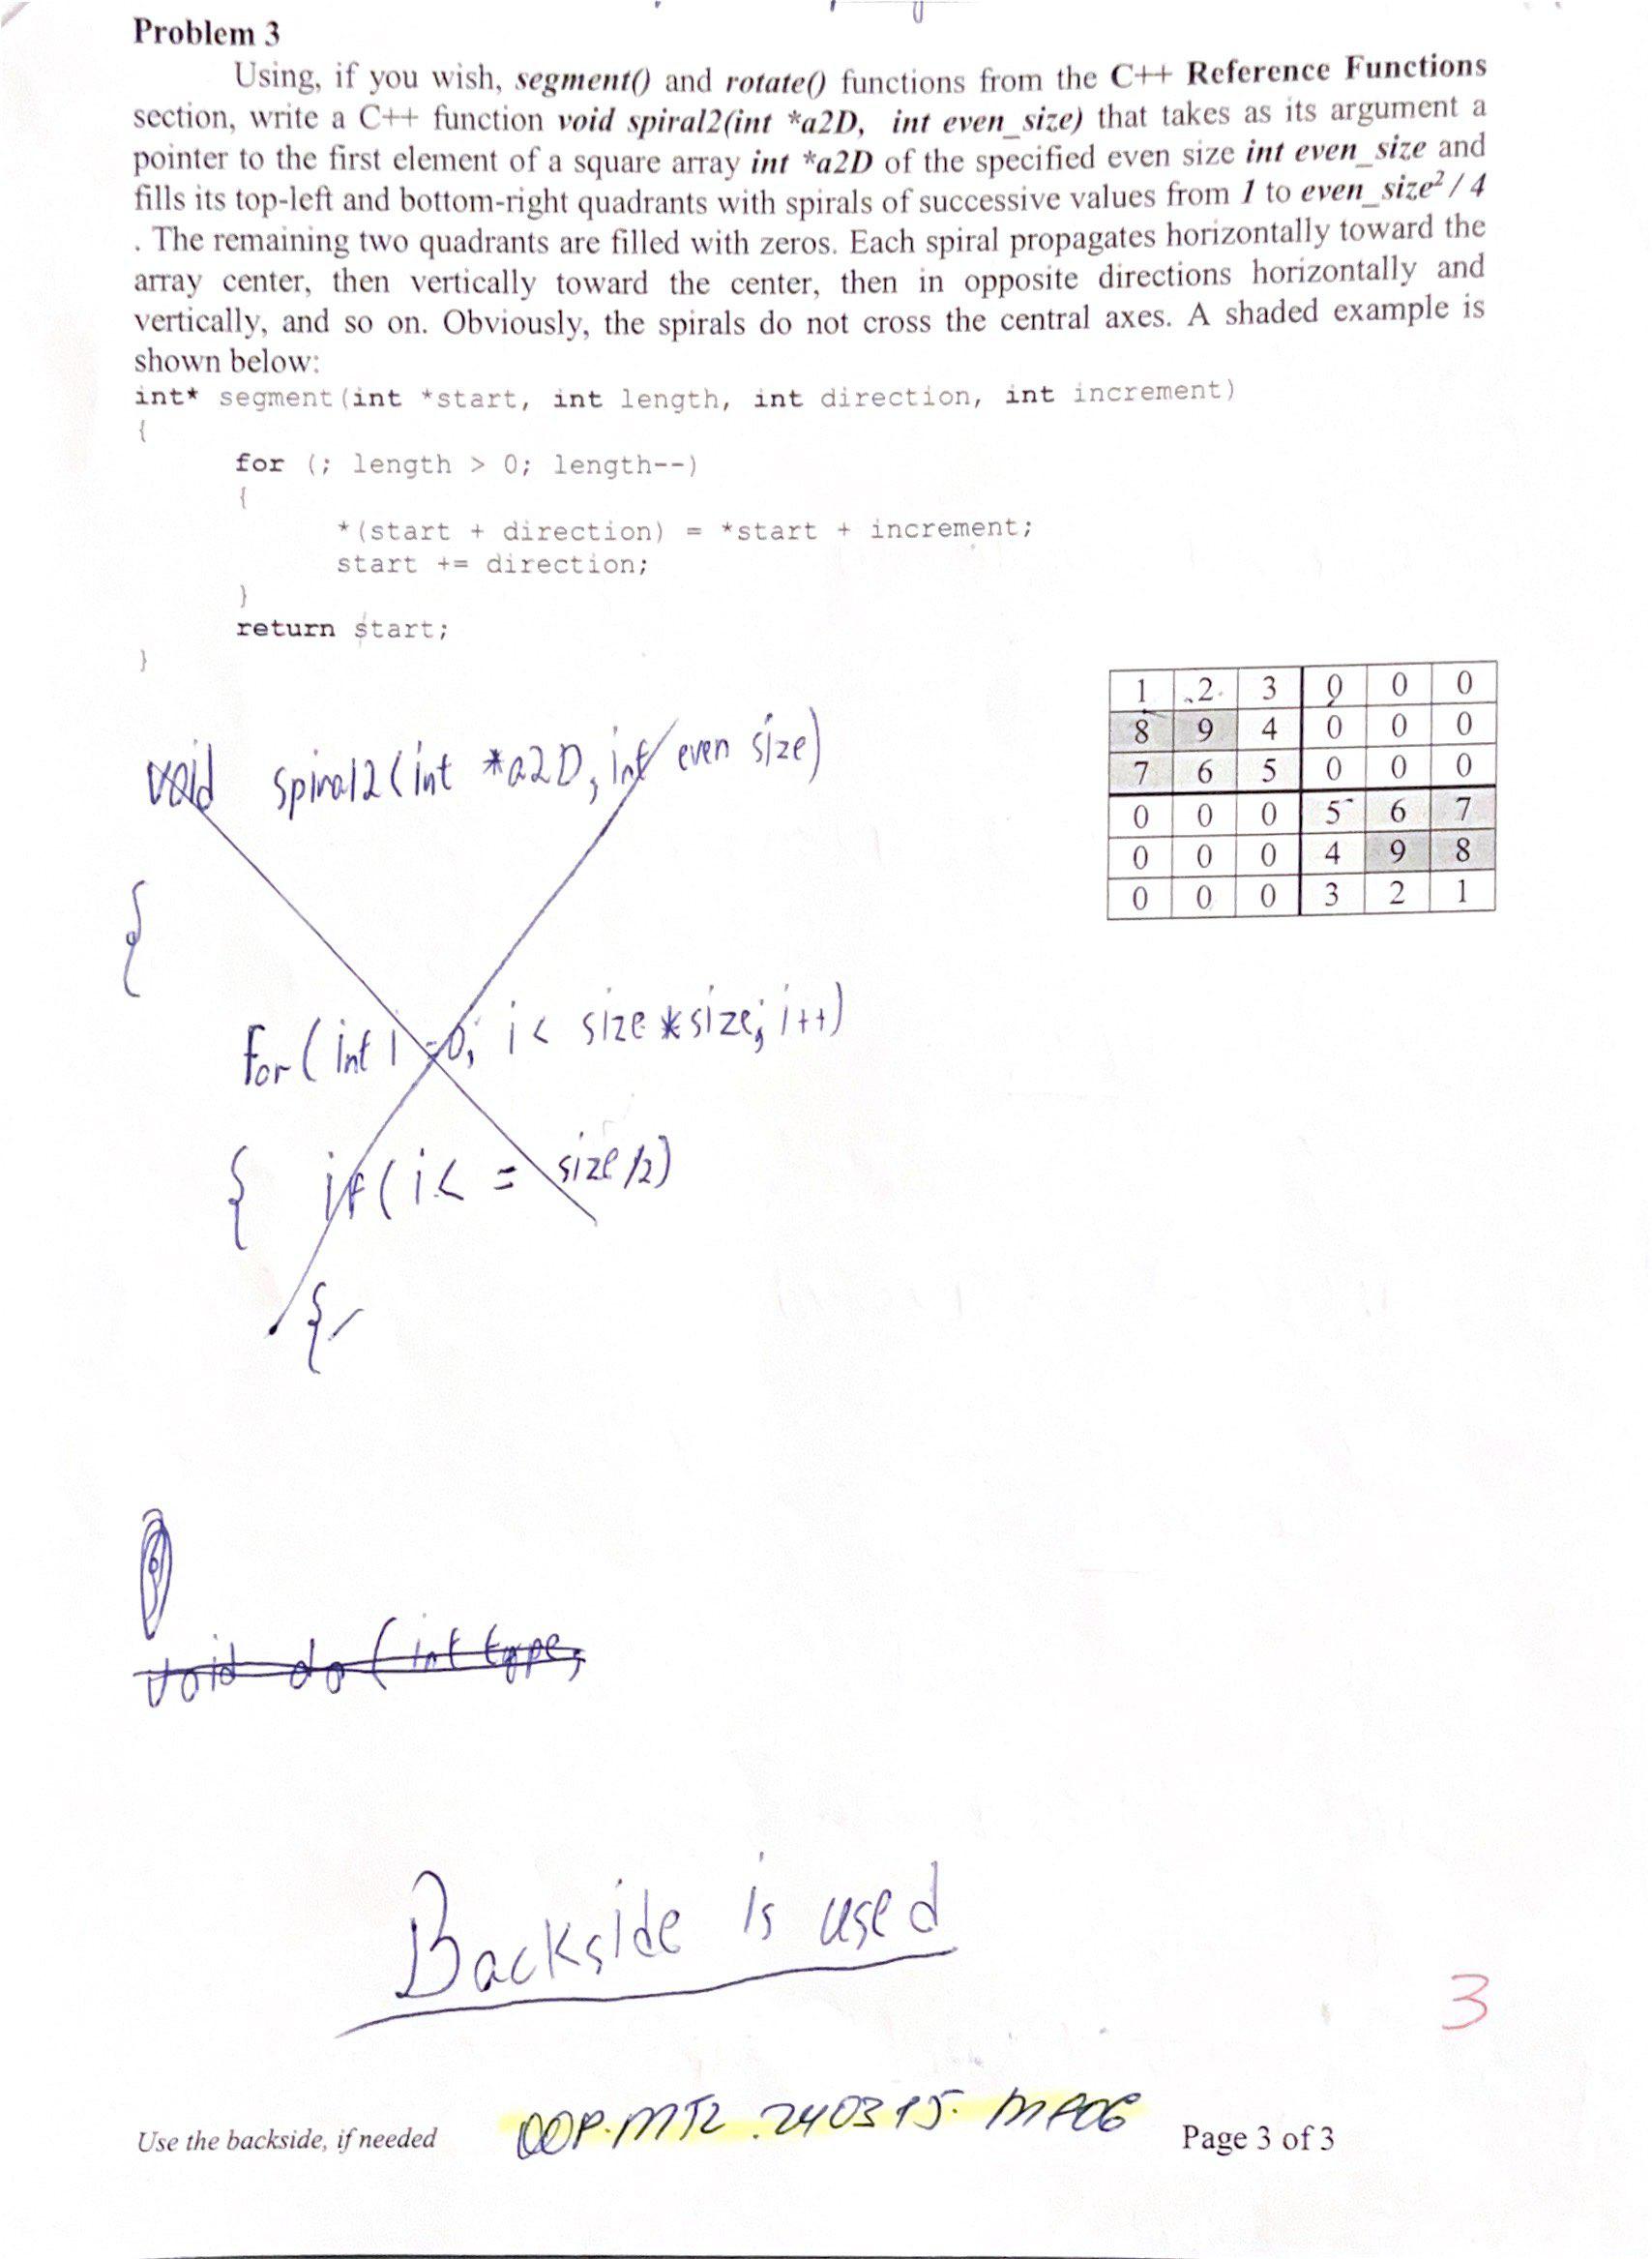 Problem 3
Using, if you wish, segment() and rotate() functions from the C++ Reference Functions
section, write a C++ function void spiral2(int *a2D, int even_size) that takes as its argument a
pointer to the first element of a square array int *a2D of the specified even size int even_size and
fills its top-left and bottom-right quadrants with spirals of successive values from 1 to even_size² / 4
. The remaining two quadrants are filled with zeros. Each spiral propagates horizontally toward the
array center, then vertically toward the center, then in opposite directions horizontally and
vertically, and so on. Obviously, the spirals do not cross the central axes. A shaded example is
shown below:
int* segment(int *start, int length, int direction, int increment)
{
for (; length > 0; length--)
{
*(start + direction) = *start + increment;
start += direction;
}
return start;
}
1 2 3 0 0 0
8 9 4 0 0 0
7 6 5 0 0 0
0 0 0 5 6 7
0 0 0 4 9 8
0 0 0 3 2 1
void spiral2(int *a2D, int even size)
{
for(int i=0; i< size*size; i++)
{ if(i<= size/2)
{
void do(int type,
Backside is used
3
Use the backside, if needed OOP.MT2.240315.MP06 Page 3 of 3